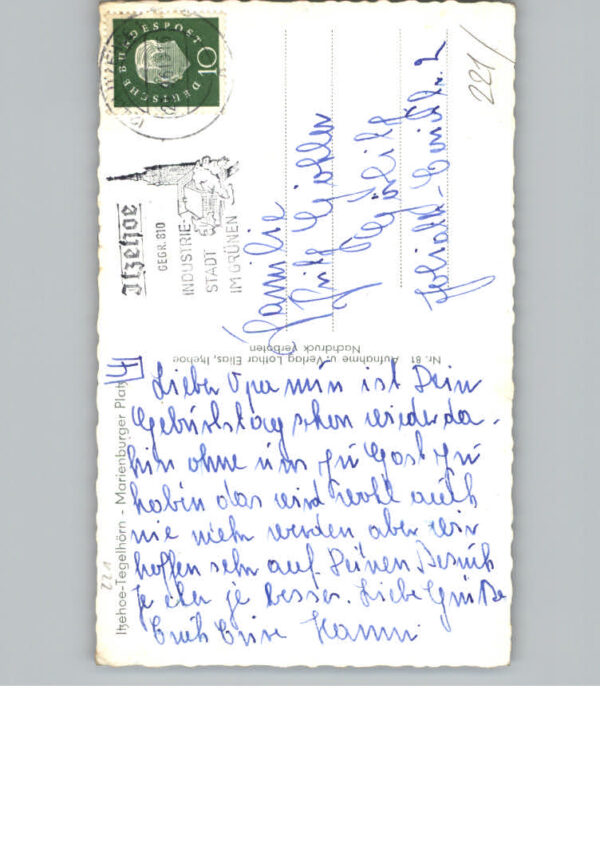 DEUTSCHE BUNDESPOST
10
Itzehoe
GEGR. 810
INDUSTRIE-
STADT
IM GRÜNEN
221/
Familie
Fritz
Nr. 81 Aufnahme u. Verlag Lothar Elias, Itzehoe
Nachdruck verboten
Itzehoe-Tegelhörn - Marienburger Platz
221
4
Lieber Opa nun ist Dein
Geburtstag schon wieder da-
hin ohne uns zu Gast zu
haben das wird wohl auch
nie mehr werden aber wir
hoffen sehr auf Deinen Besuch
je eher je besser. Liebe Grüße
Euch Eure